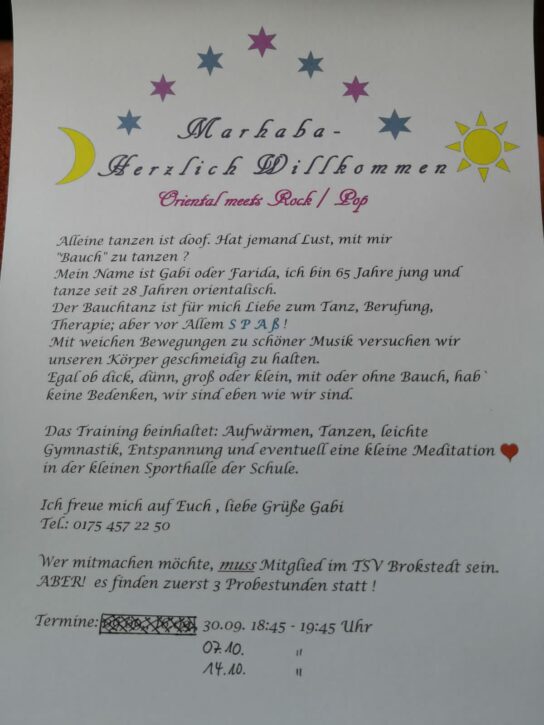 Marhaba-
Herzlich Willkommen
Oriental meets Rock / Pop
Alleine tanzen ist doof. Hat jemand Lust, mit mir
"Bauch" zu tanzen ?
Mein Name ist Gabi oder Farida, ich bin 65 Jahre jung und
tanze seit 28 Jahren orientalisch.
Der Bauchtanz ist für mich Liebe zum Tanz, Berufung,
Therapie; aber vor Allem S P A ß !
Mit weichen Bewegungen zu schöner Musik versuchen wir
unseren Körper geschmeidig zu halten.
Egal ob dick, dünn, groß oder klein, mit oder ohne Bauch, hab`
keine Bedenken, wir sind eben wie wir sind.
Das Training beinhaltet: Aufwärmen, Tanzen, leichte
Gymnastik, Entspannung und eventuell eine kleine Meditation
in der kleinen Sporthalle der Schule.
Ich freue mich auf Euch , liebe Grüße Gabi
Tel.: 0175 457 22 50
Wer mitmachen möchte, muss Mitglied im TSV Brokstedt sein.
ABER! es finden zuerst 3 Probestunden statt !
Termine: 30.09. 18:45 - 19:45 Uhr
07.10. "
14.10. "